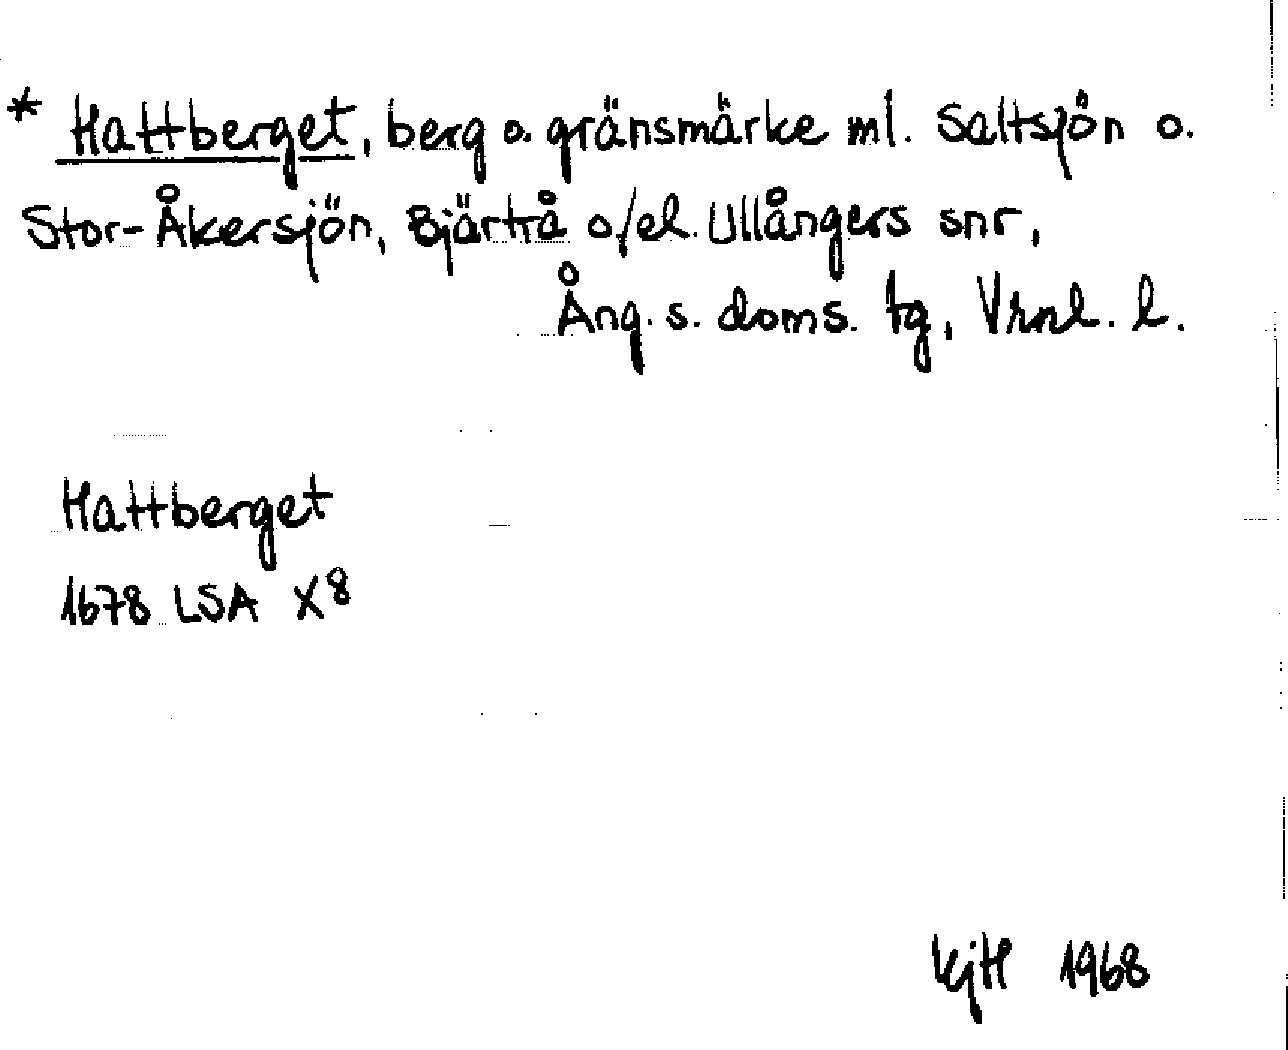 * Hattberget, berg o. gränsmärke ml. Saltsjön o.
Stor-Åkersjön, Bjärtrå o/el. Ullångers snr,
Ång. s. doms. tg, Vrnl. l.
Hattberget
1678 LSA X8
KjH 1968